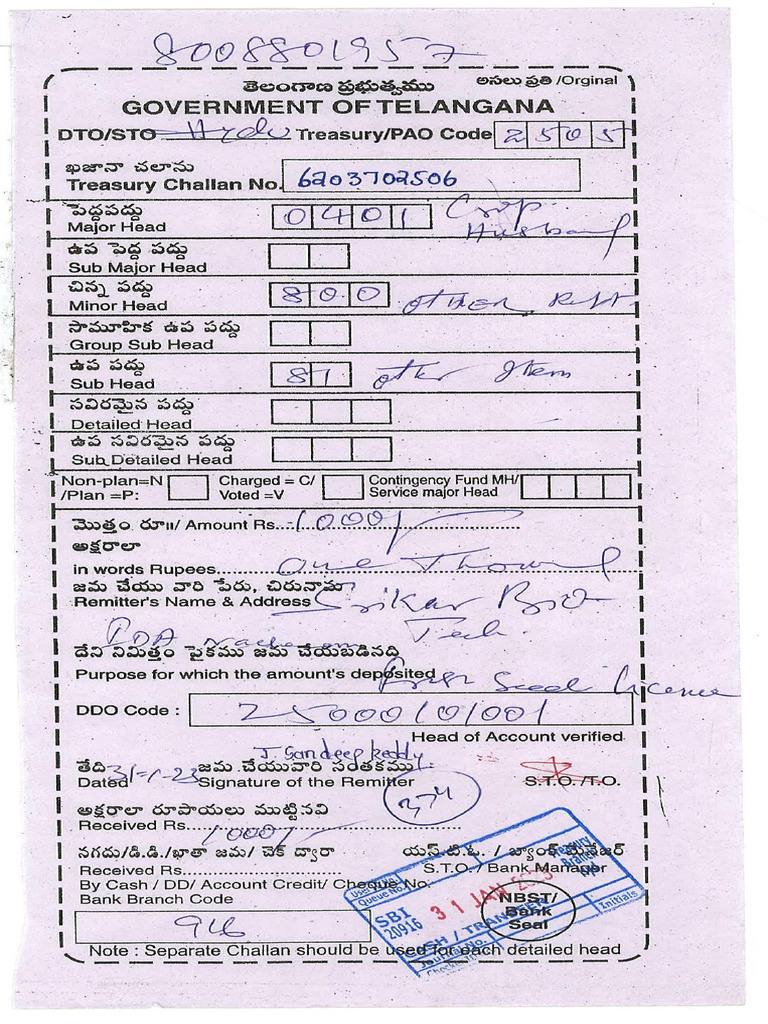 8008801957
తెలంగాణ ప్రభుత్వము అసలు ప్రతి /Orginal
GOVERNMENT OF TELANGANA
DTO/STO Treasury/PAO Code 2505
ఖజానా చలాను
Treasury Challan No. 6203702506
పెద్దపద్దు
Major Head 0401 Crop
Husband
ఉప పెద్ద పద్దు
Sub Major Head
చిన్న పద్దు
Minor Head 800 other
సామూహిక ఉప పద్దు
Group Sub Head
ఉప పద్దు
Sub Head 81 other Item
సవిరమైన పద్దు
Detailed Head
ఉప సవిరమైన పద్దు
Sub Detailed Head
Non-plan=N Charged = C/ Contingency Fund MH/
/Plan =P: Voted =V Service major Head
మొత్తం రూ॥/ Amount Rs. 1000/-
అక్షరాలా
in words Rupees One Thousand
జమ చేయు వారి పేరు, చిరునామా
Remitter's Name & Address Srikar Bio
Tech.
దేని నిమిత్తం పైకము జమ చేయబడినది
Purpose for which the amount's deposited Seed licence
DDO Code : 25000101001
Head of Account verified
J. Sandeep Reddy
తేది జమ చేయువారి సంతకము
Dated 31-1-23 Signature of the Remitter S.T.O. /T.O.
అక్షరాలా రూపాయలు ముట్టినవి
Received Rs. 1000/-
నగదు/డి.డి./ఖాతా జమ/ చెక్ ద్వారా యస్.టి.ఓ. / బ్యాంక్ మేనేజర్
Received Rs. S.T.O. / Bank Manager
By Cash / DD/ Account Credit/ Cheque No.
Bank Branch Code
916
NBST/
Bank
Seal
Queue No.
Treasury
Branch
SBI
20916
31 JAN
CASH / TRANSFER
Journal No.
Initials
Note : Separate Challan should be used for each detailed head